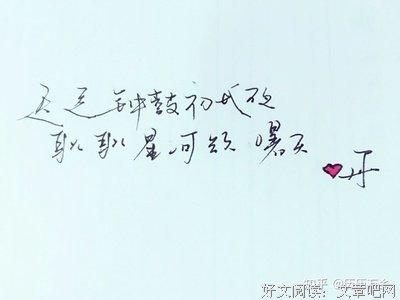 迟迟钟鼓初长夜
耿耿星河欲曙天
知乎
好文阅读：文章吧网